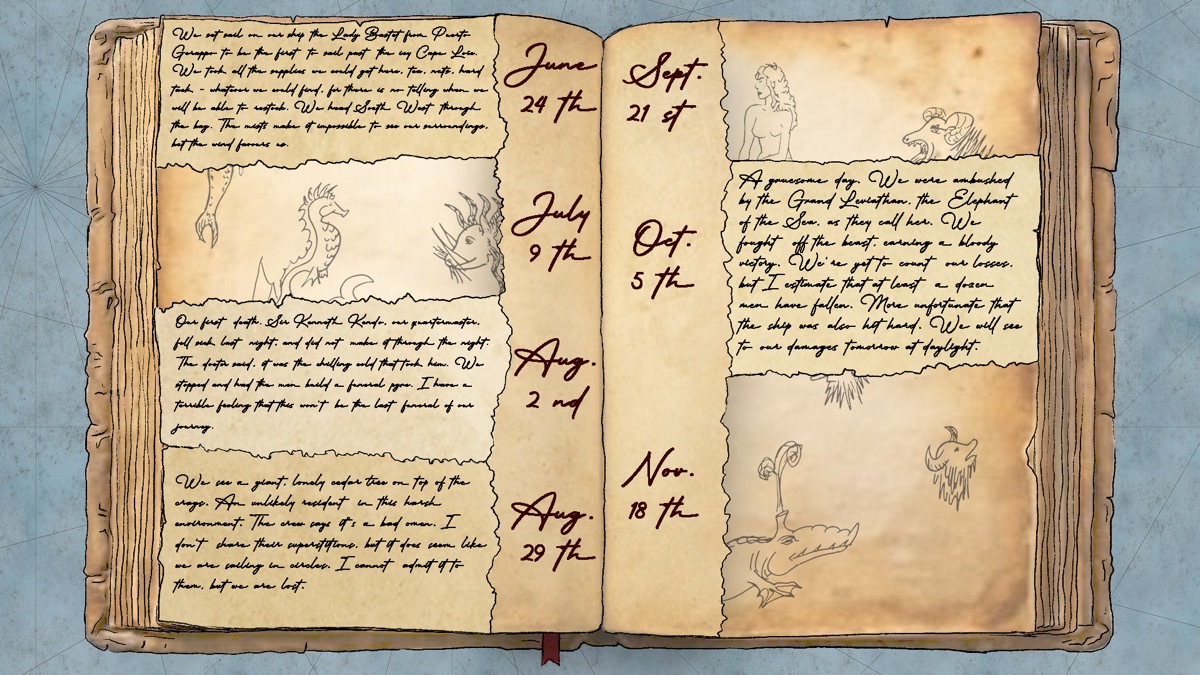 We set sail on our ship the Lady Bastet from Puerto
Garappo to be the first to sail past the icy Cape Loic.
We took all the supplies we could get here, tea, nuts, hard
tack - whatever we could find, for there is no telling when we
will be able to restock. We head South West through
the bay. The mists make it impossible to see our surroundings,
but the wind favours us.
June
24 th
July
9 th
Our first death. Ser Kenneth Kendo, our quartermaster,
fell sick last night, and did not make it through the night.
The doctor said, it was the chilling cold that took him. We
stopped and had the men build a funeral pyre. I have a
terrible feeling that this won't be the last funeral of our
journey.
Aug.
2 nd
We see a giant, lonely cedar tree on top of the
crags. An unlikely resident in this harsh
environment. The crew says it's a bad omen. I
don't share their superstitions, but it does seem like
we are sailing in circles. I cannot admit it to
them, but we are lost.
Aug.
29 th
Sept.
21 st
Oct.
5 th
A gruesome day. We were ambushed
by the Grand Leviathan, the Elephant
of the Sea, as they call her. We
fought off the beast, earning a bloody
victory. We're yet to count our losses,
but I estimate that at least a dozen
men have fallen. More unfortunate that
the ship was also hit hard. We will see
to our damages tomorrow at daylight.
Nov.
18 th